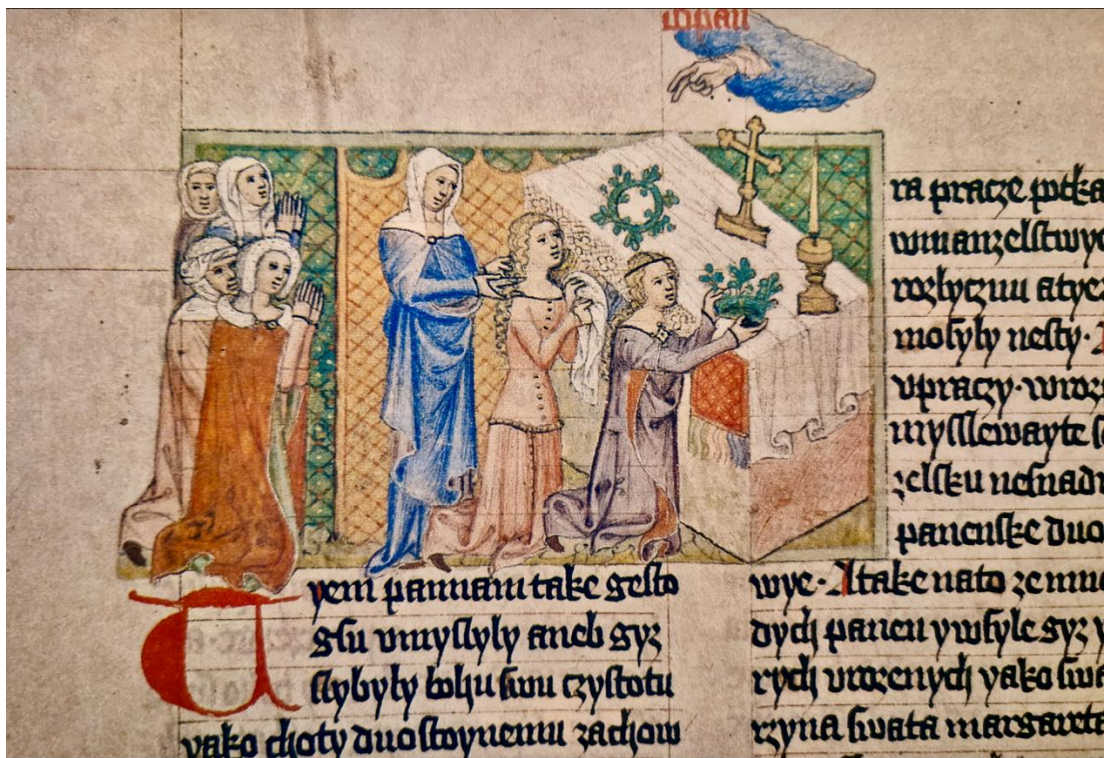 Tyem pannam take gesto
gsu vmyslyly aneb gyz
slybyly bohu swu czystotu
yako choty duostoynemu zachow
ra pracze potka
wmanzelstwye
mosyly nesty · A
vpraczy · wroz
zelsku nesnad
panenske duo
wye · A take nato ze
dych panen ywsyle gyz
rych vrozenych yako swa
rzyna swata margareta